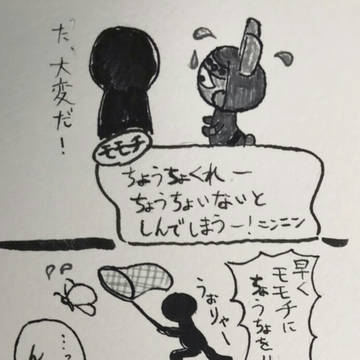 だ、大変だ!
モモチ
ちょうちょくれー
ちょうちょいないと
しんでしまうー!ニンニン
早く
モモチに
ちょうちょを
うおりゃー